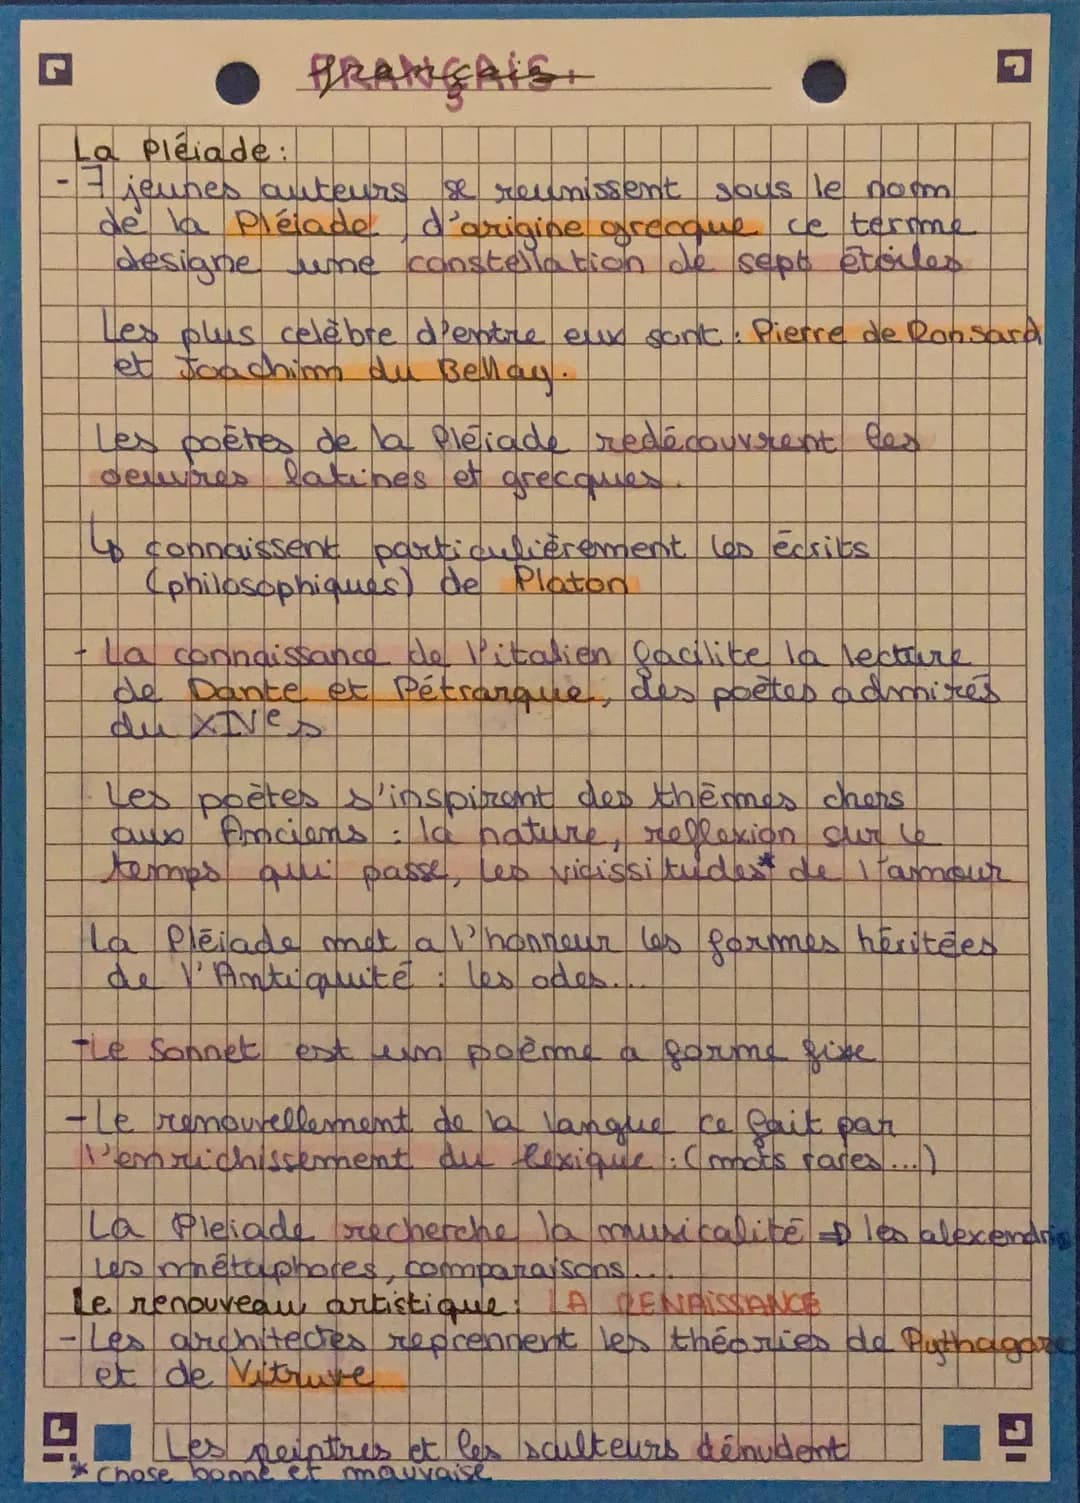 FRANÇAIS
La Pléiade :
- 7 jeunes auteurs se reunissent sous le nom
de la Pléiade, d'origine grecque ce terme
désigne une constellation de sept étoiles
Les plus celèbre d'entre eux sont : Pierre de Ronsard
et Joachim du Bellay.
Les poètes de la Pléiade redécouvrent les
oeuvres latines et grecques.
↳ connaissent particulièrement les écrits
(philosophiques) de Platon
- La connaissance de l'italien facilite la lecture
de Dante et Pétrarque, des poètes admirés
du XIVe s
Les poètes s'inspirent des thèmes chers
aux Anciens : la nature, reflexion sur le
temps qui passe, les vicissitudes* de l'amour
La Pléiade met a l'honneur les formes héritées
de l'Antiquité : les odes...
- Le Sonnet est un poème a forme fixe
- Le renouvellement de la langue ce fait par
l'enrichissement du lexique : (mots rares...)
La Pleiade recherche la musicalité ⇒ les alexendrins
Les métaphores, comparaisons...
Le renouveau artistique : LA RENAISSANCE
- Les architectes reprennent les théories de Pythagore
et de Vitruve
Les peintres et les sculteurs dénudent
* chose bonne et mauvaise